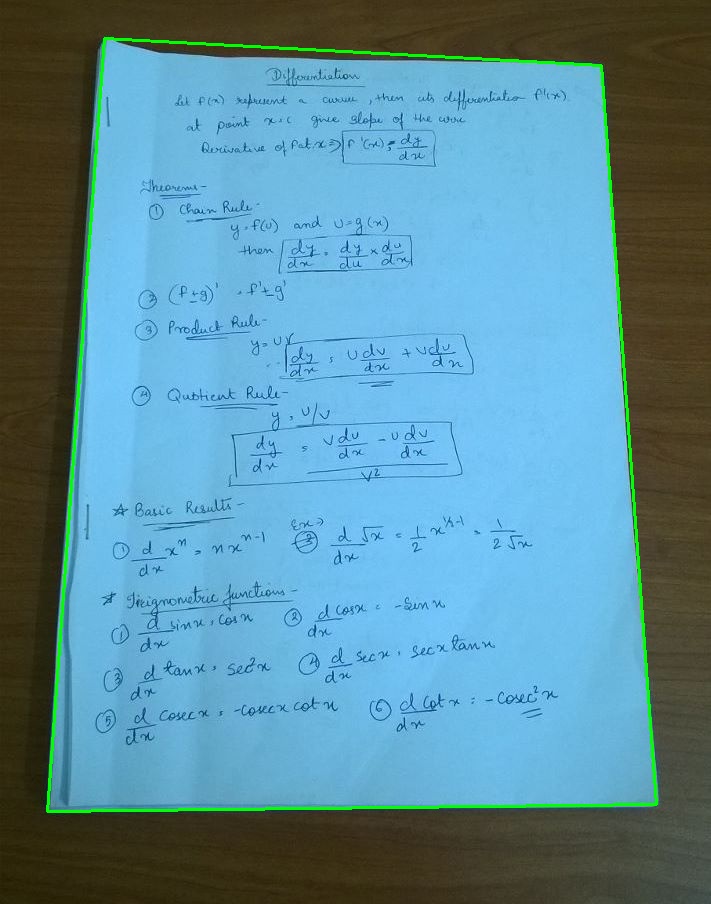 Differentiation
Let f(x) represent a curve, then its differentiation f'(x)
at point x=c give slope of the curve
Derivative of f at x ⇒ f'(x) = dy/dx
Theorems-
① Chain Rule-
y = f(u) and u = g(x)
then dy/dx = dy/du × du/dx
② (f±g)' = f'±g'
③ Product Rule-
y = uv
dy/dx = u dv/dx + v du/dx
④ Quotient Rule-
y = u/v
dy/dx = (v du/dx - u dv/dx)/v²
☆ Basic Results-
① d/dx xⁿ = nxⁿ⁻¹ Ex→ d/dx √x = 1/2 x^(1/2-1) = 1/(2√x)
☆ Trignometric functions-
① d/dx sinx = cosx ② d/dx cosx = -sinx
③ d/dx tanx = sec²x ④ d/dx secx = secx tanx
⑤ d/dx cosecx = -cosecx cotx ⑥ d/dx cotx = -cosec²x